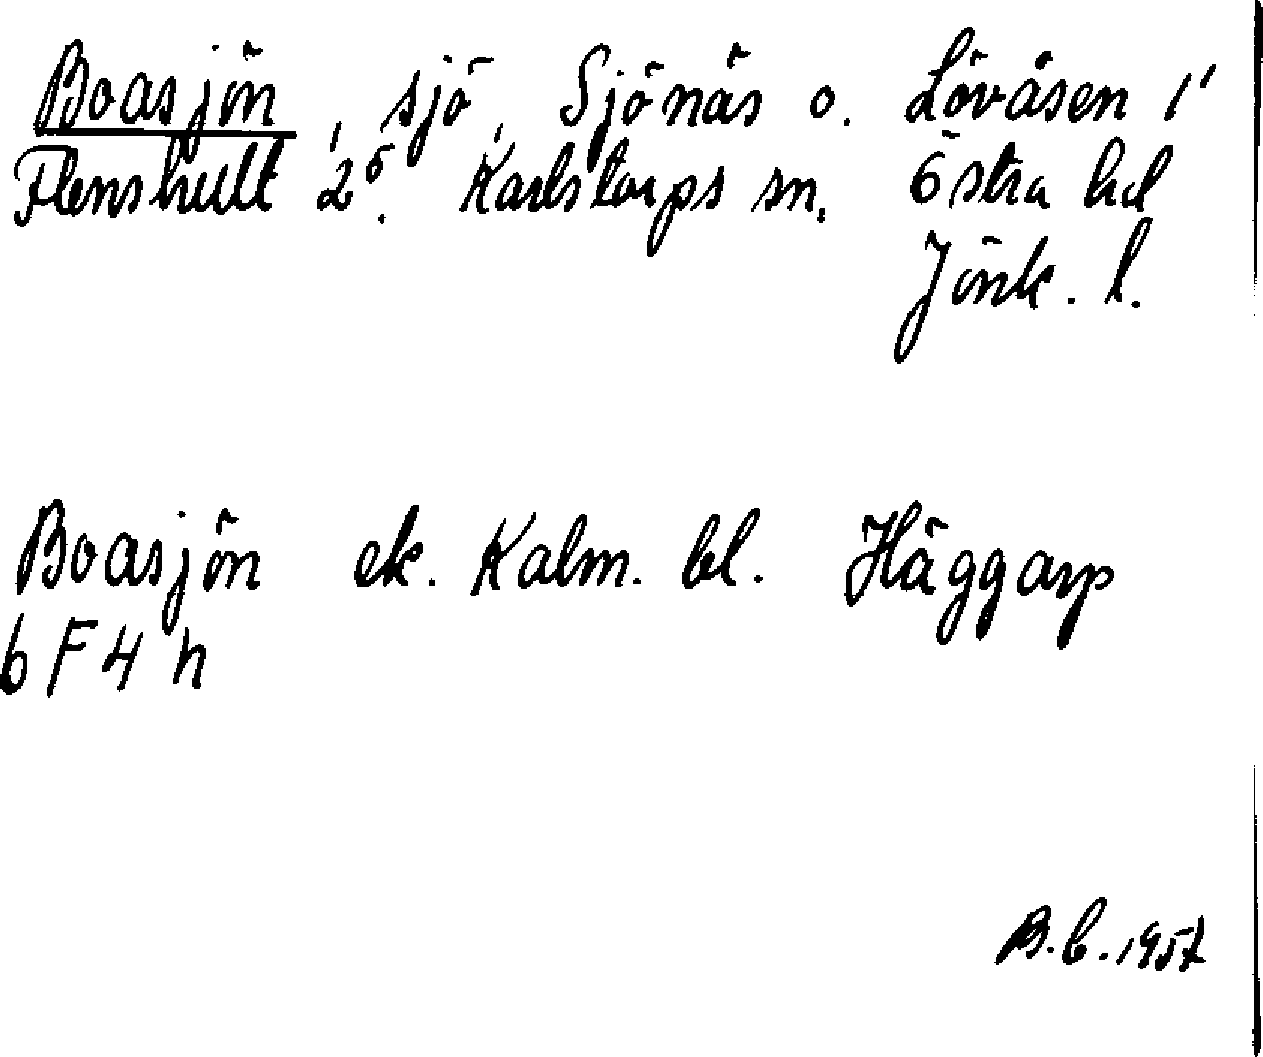 Boasjön, sjö, Sjönäs o. Lövåsen 1¹
Flenshult 2⁵. Karlstorps sn, Östra hd
Jönk. l.
Boasjön ek. Kalm. bl. Häggarp
6 F 4 h
B.E. 1957